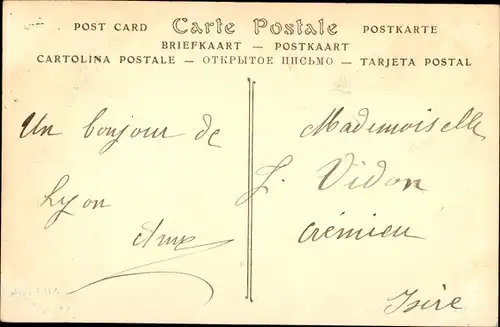 POST CARD Carte Postale POSTKARTE
BRIEFKAART — POSTKAART
CARTOLINA POSTALE — ОТКРЫТОЕ ПИСЬМО — TARJETA POSTAL
Un bonjour de
Lyon
Mademoiselle
J. Vidon
Crémieu
Isère